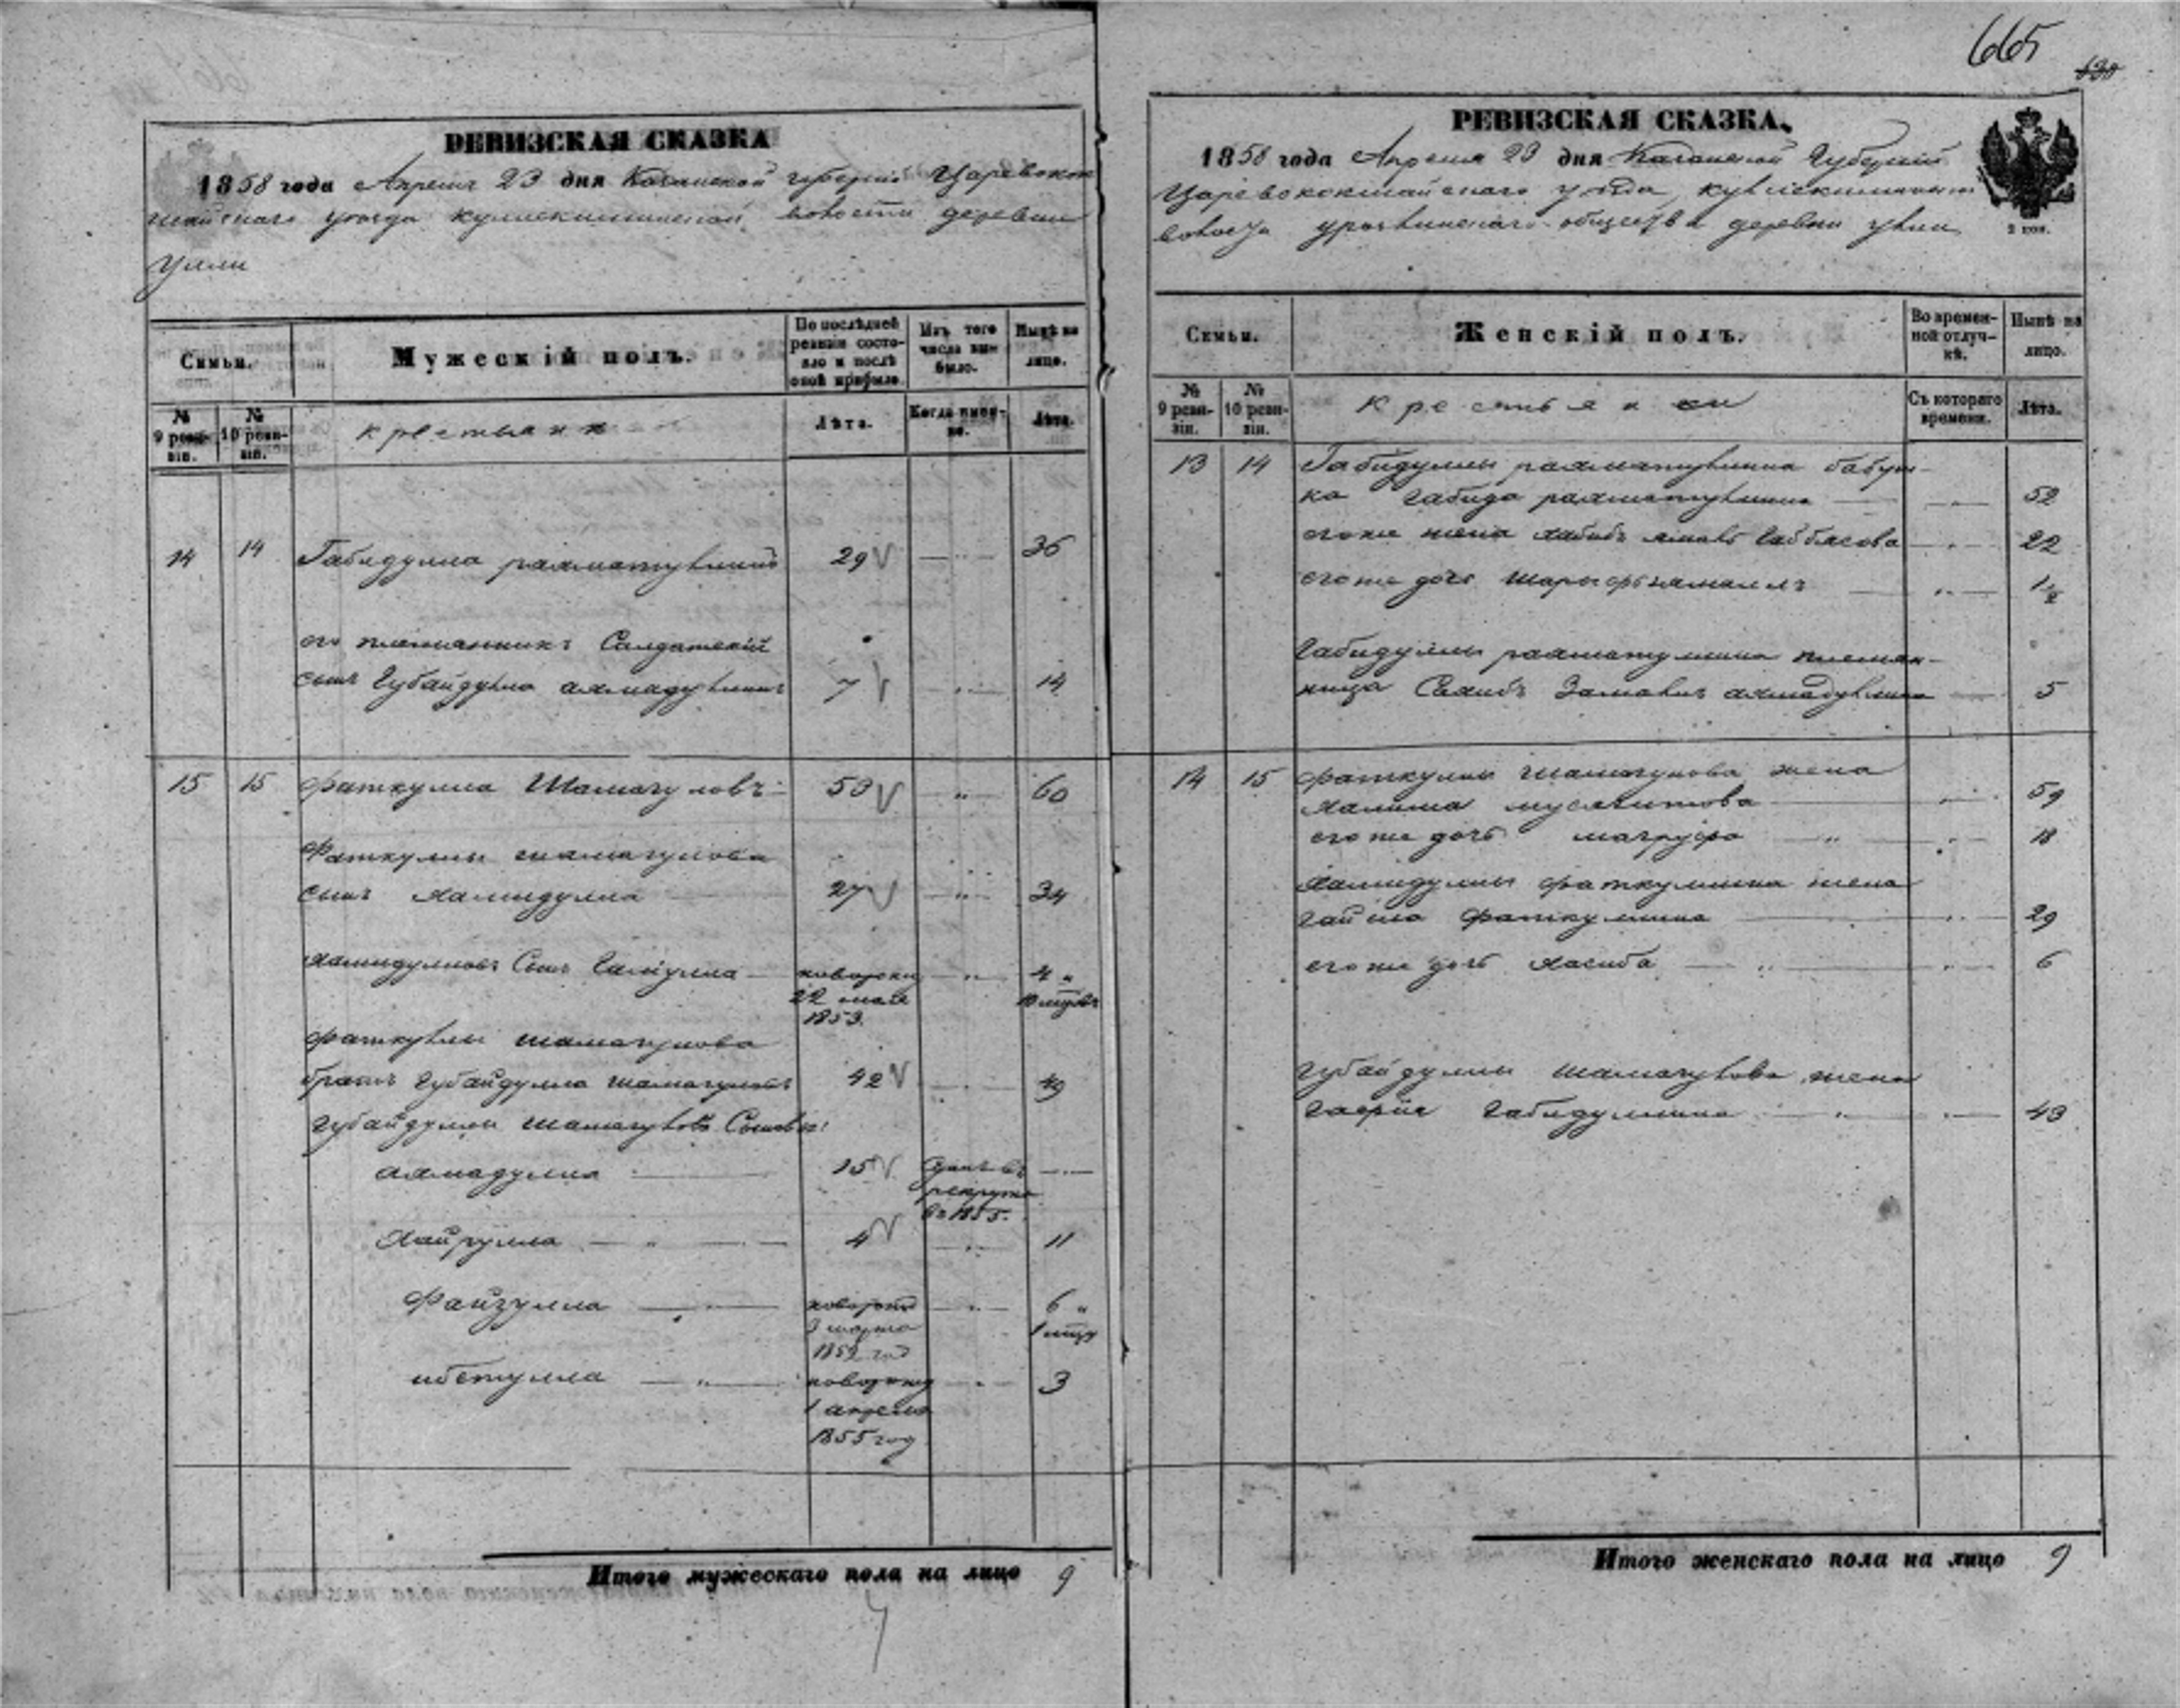 665
630
РЕВИЗСКАЯ СКАЗКА
1858 года Апреля 23 дня Казанской губернiи Царевокок
шайскаго уезда волости деревни
Уили
Семьи.
Мужескiй полъ.
По последней ревизiи состояло и после оной прибыло
Изъ того числа выбыло.
Ныне на лицо.
№ 9 ревизiи.
№ 10 ревизiи.
крестьяне
Лѣта.
Когда именно.
Лѣта.
14 14 Габидулла рахматуллинъ 29 36
его племянникъ Салдатскiй
сынъ Губайдулла ахмадуллинъ 7 14
15 15 фаткулла Шамагуловъ 53 60
Фаткуллы шамагулова
сынъ хамидулла 27 34
хамидулловъ Сынъ Галiулла новорожд 4
22 мая 10 мцовъ
1853.
фаткуллы шамагулова
братъ Губайдулла шамагуловъ 42 49
Губайдуллы шамагулова Сыновья:
ахмадулла 15 Сданъ въ
рекруты
въ 1855.
хайрулла 4 11
Файзулла новорожд 6
3 марта 1 мцъ
1852 год
ибетулла новорожд 3
1 апреля
1855 год
Итого мужескаго пола на лицо 9
РЕВИЗСКАЯ СКАЗКА.
1858 года Апреля 23 дня Казанской Губернiи
Царевококшайскаго уезда,
волости общества деревни
2 коп.
Семьи.
Женскiй полъ.
Во временной отлучкѣ.
Нынѣ на лицо.
№ 9 ревизiи.
№ 10 ревизiи.
крестьянки
Съ котораго времени.
Лѣта.
13 14 Габидуллы рахматуллина бабуш-
ка Габида рахматуллина 52
его же жена Габбясова 22
его же дочь 1/2
Габидуллы рахматуллина племян-
ница ахмадуллина 5
14 15 фаткуллы шамагулова жена
халима 59
его же дочь магруфа 18
хамидуллы фаткуллина жена
фаткуллина 29
его же дочь хасиба 6
Губайдуллы шамагулова жена
Габидуллина 43
Итого женскаго пола на лицо 9